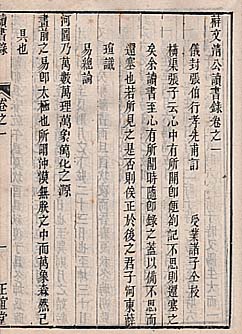 薛文清公讀書錄卷之一
儀封張伯行孝先甫訂　受業諸子仝校
橫渠張子云心中有所開即便劄記不思則還塞之
矣余讀書至心有所開時隨即錄之蓋以備不思而
還塞也若所見之是否則俟正於後之君子河東薛
瑄識
易總論
河圖乃萬數萬理萬象萬化之源
畫前之易即太極也所謂沖漠無朕之中而萬象森然已
具也
讀書錄
卷之一
一
正誼堂